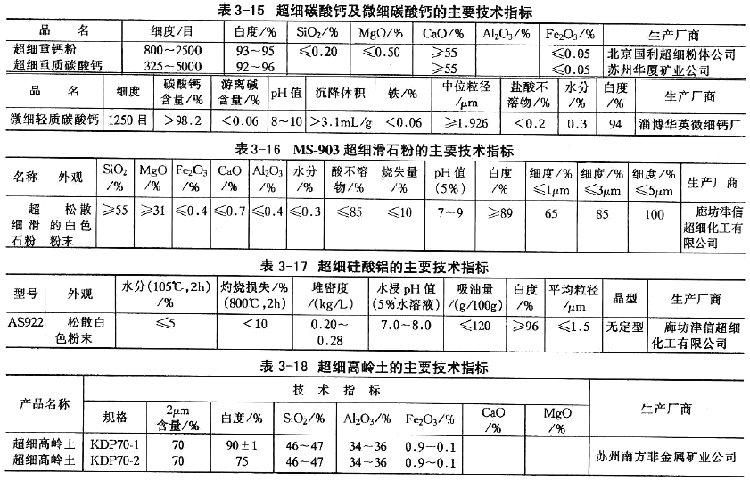 表 3-15 超细碳酸钙及微细碳酸钙的主要技术指标
品 名 细度/目 白度/% SiO₂/% MgO/% CaO/% Al₂O₃/% Fe₂O₃/% 生产厂商
超细重钙粉 800~2500 93~95 ≤0.20 ≤0.50 ≥55 ≤0.05 北京国利超细粉体公司
超细重质碳酸钙 325~5000 92~96 ≥55 ≤0.05 苏州华厦矿业公司
品 名 细度 碳酸钙含量/% 游离碱含量/% pH 值 沉降体积 铁/% 中位粒径/μm 盐酸不溶物/% 水分/% 白度/% 生产厂商
微细轻质碳酸钙 1250 目 >98.2 <0.06 8~10 >3.1mL/g <0.06 ≥1.926 <0.2 0.3 94 淄博华英微细钙厂
表 3-16 MS-903 超细滑石粉的主要技术指标
名称 外观 SiO₂/% MgO/% Fe₂O₃/% CaO/% Al₂O₃/% 水分/% 酸不溶物/% 烧失量/% pH 值(5%) 白度/% 细度/%≤1μm 细度/%≤3μm 细度/%≤5μm 生产厂商
超细滑石粉 松散的白色粉末 ≥55 ≥31 ≤0.4 ≤0.7 ≤0.4 ≤0.3 ≤85 ≤10 7~9 ≥89 65 85 100 廊坊津信超细化工有限公司
表 3-17 超细硅酸铝的主要技术指标
型号 外观 水分(105℃,2h)/% 灼烧损失/%(800℃,2h) 堆密度/(kg/L) 水浸 pH 值(5%水溶液) 吸油量/(g/100g) 白度/% 平均粒径/μm 晶型 生产厂商
AS922 松散白色粉末 ≤5 <10 0.20~0.28 7.0~8.0 ≤120 ≥96 ≤1.5 无定型 廊坊津信超细化工有限公司
表 3-18 超细高岭土的主要技术指标
产品名称 技 术 指 标 生产厂商
规格 2μm含量/% 白度/% SiO₂/% Al₂O₃/% Fe₂O₃/% CaO/% MgO/%
超细高岭土 KDP70-1 70 90±1 46~47 34~36 0.9~0.1 苏州南方非金属矿业公司
超细高岭土 KDP70-2 70 75 46~47 34~36 0.9~0.1